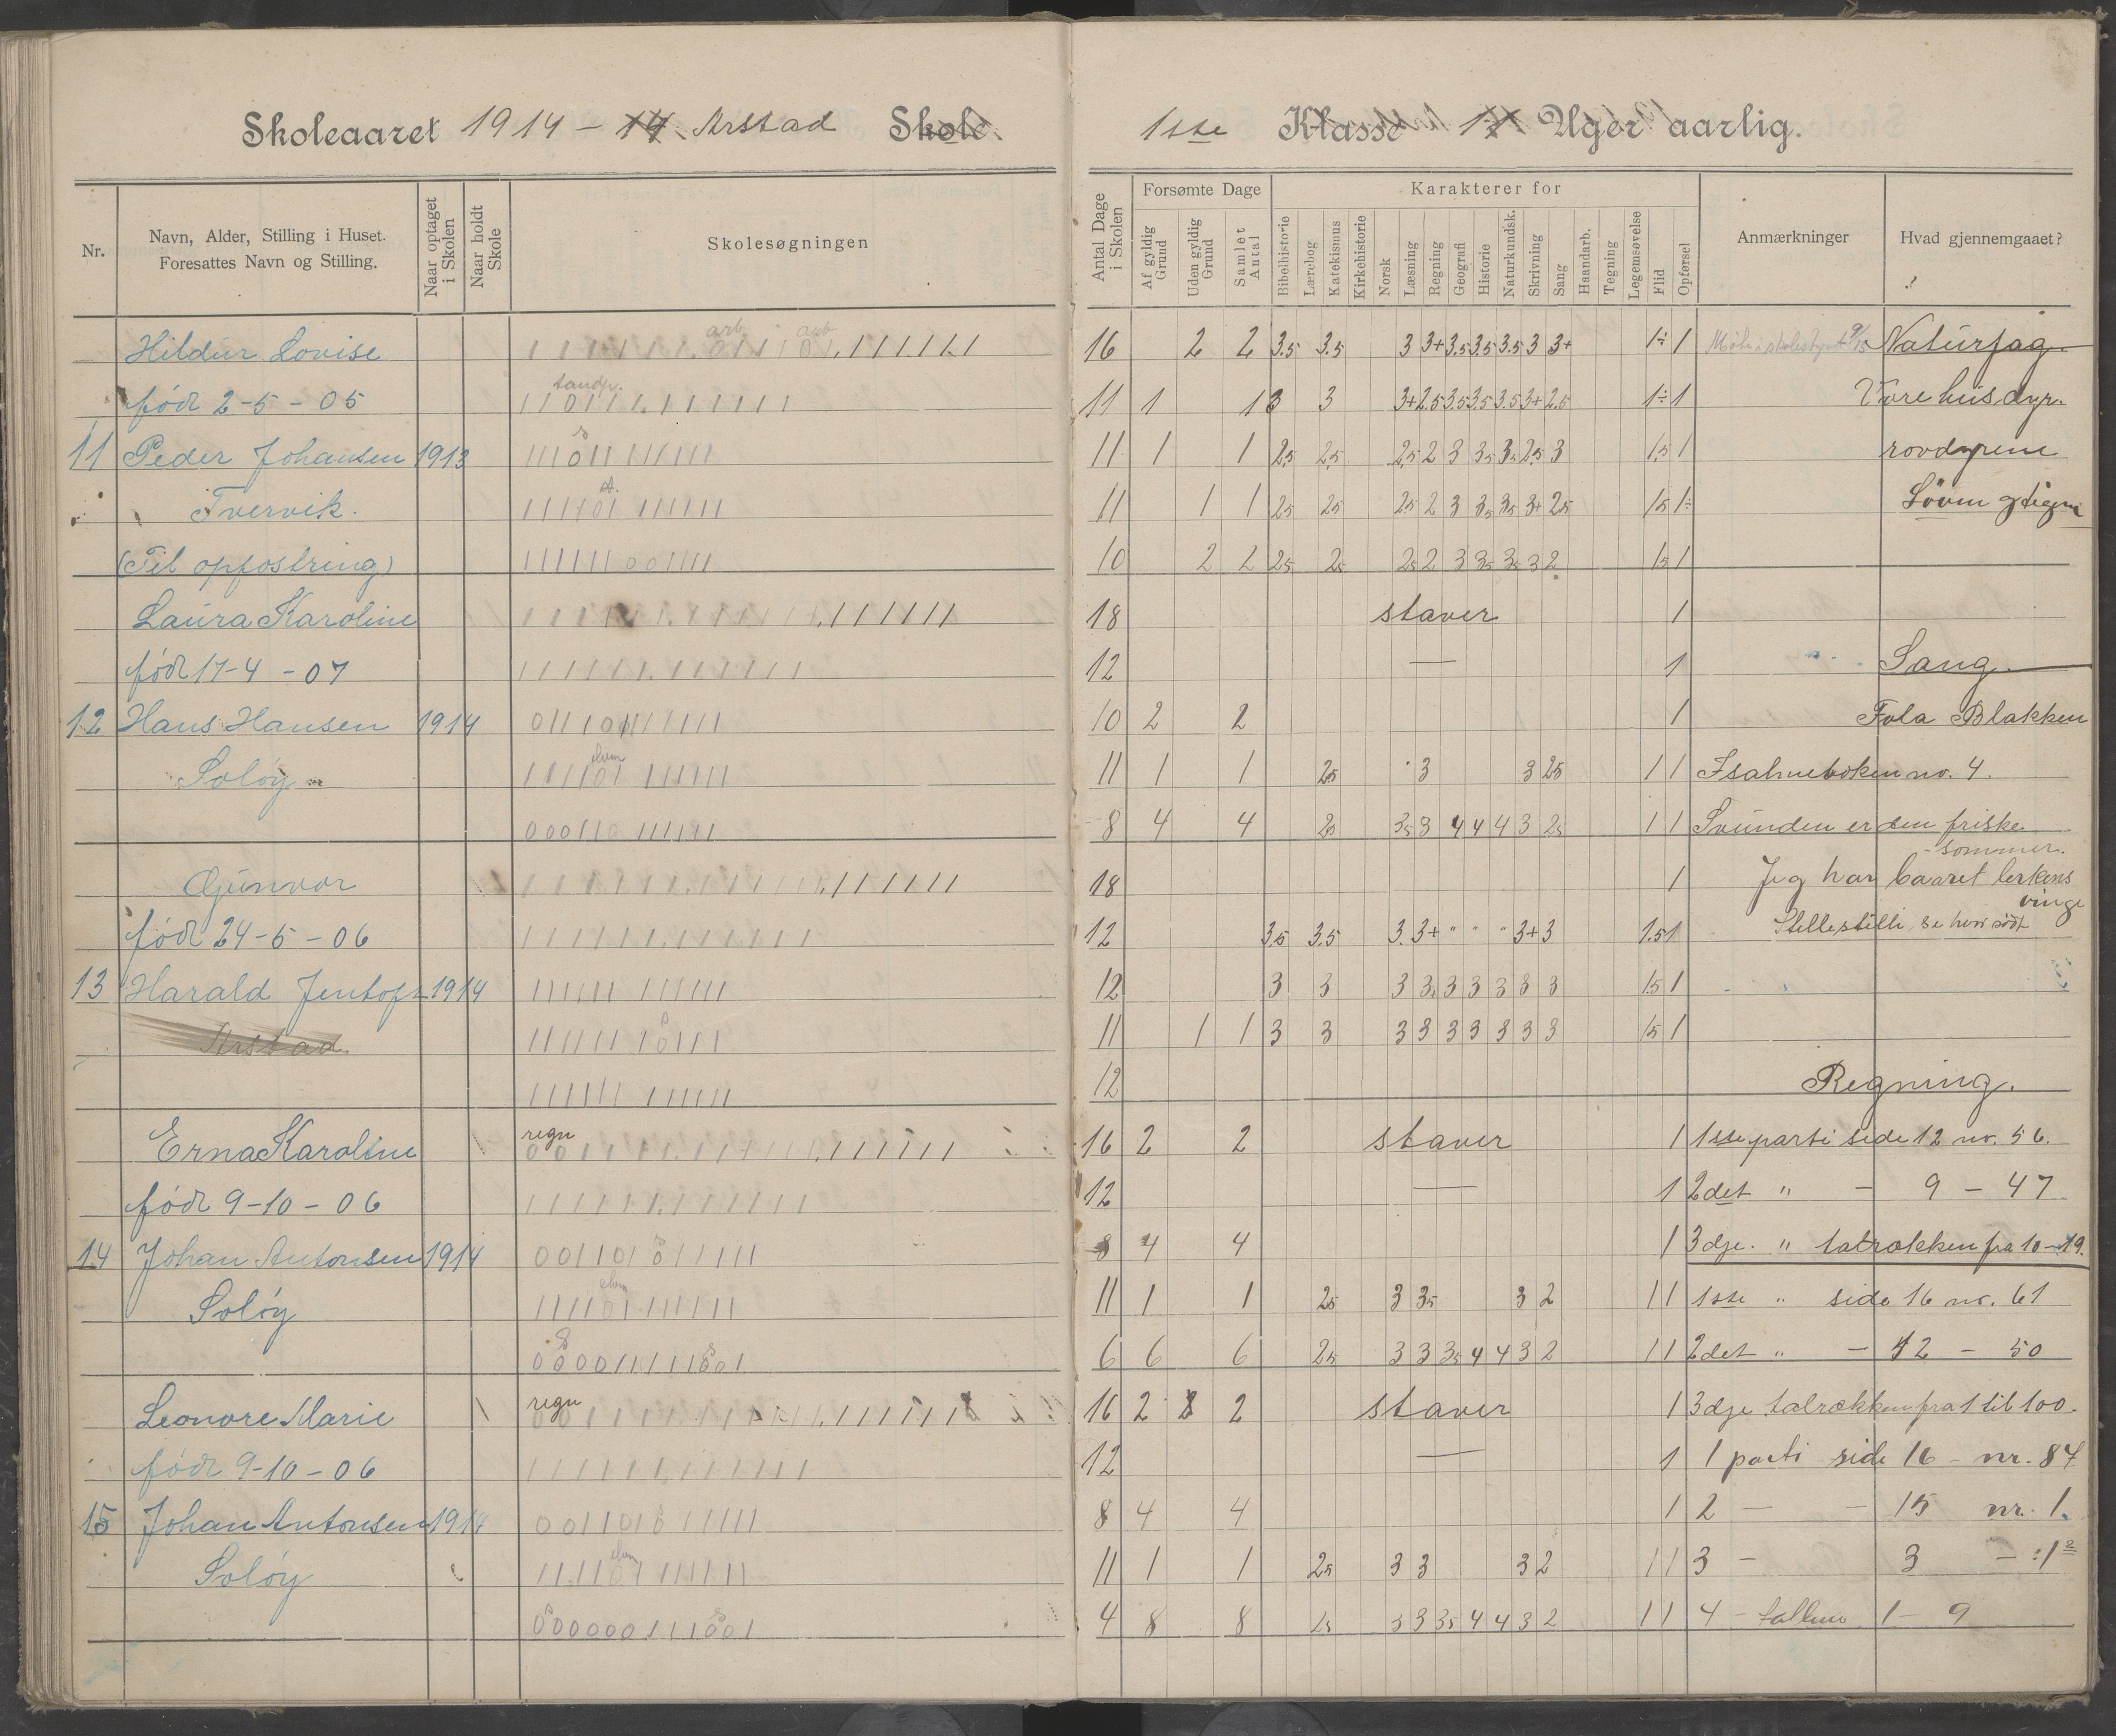 Skoleaaret 1914 - 14. Arstad Skole. 1ste Klasse 12 Uger aarlig.
Nr. Navn, Alder, Stilling i Huset. Foresattes Navn og Stilling. Naar optaget i Skolen Naar holdt Skole Skolesøgningen Antal Dage i Skolen Forsømte Dage Af gyldig Grund Uden gyldig Grund Samlet Antal Karakterer for Bibelhistorie Lærebog Katekismus Kirkehistorie Norsk Læsning Regning Geografi Historie Naturkundsk. Skrivning Sang Haandarb. Tegning Legemsøvelse Flid Opførsel Anmærkninger Hvad gjennemgaaet?
Hildur Lovise arb. arb 16 2 2 3.5 3.5 3 3+ 3.5 3.5 3.5 3 3+ 1÷ 1 Naturfag
född 2-5-05 tandp. 11 1 1 3 3 3+ 2.5 3.5 3.5 3.5 3+ 2.5 1÷ 1 Vore husdyr.
11 Peder Johansen 1913 11 1 1 2.5 2.5 2.5 2 3 3.5 3.5 2.5 3 1.5 1 rovdyrene
Tvervik. 11 1 1 25 25 25 2 3 3.5 3.5 3+ 25 15 1÷ Löven og tigren
(Til opfostring) 10 2 2 25 25 25 2 3 35 35 3 2 15 1
Laura Karoline 18 staver 1
född 17-4-07 12 — 1 Sang.
12 Hans Hansen 1914 10 2 2 1 Fola Blakken
Solöy 11 1 1 25 3 3 25 1 1 Fsalmeboken nr. 4.
8 4 4 25 35 3 4 4 4 3 25 1 1 Svunden er den friske
sommer.
Gunvor 18 1 Jeg har baaret lerkens
vinge
född 24-5-06 12 3.5 3.5 3 3+ " " " 3+ 3 1.5 1 Stille stille
13 Harald Jentoft 1914 12 3 3 3 3 3 3 3 3 3 15 1
Arstad. 11 1 1 3 3 3 3 3 3 3 3 3 15 1
12 Regning.
Erna Karoline regn 16 2 2 staver 1 1ste parti side 12 nr. 56.
född 9-10-06 12 — 1 2det " - 9 - 47
14 Johan Antonsen 1914 8 4 4 1 3dje. " talrækken fra 10-19.
Solöy 11 1 1 25 3 35 3 2 1 1 1ste " side 16 nr. 61
6 6 6 25 3 3 35 4 4 3 2 1 1 2det " - 12 - 50
Leonore Marie regn 16 2 2 staver 1 3dje talrækken fra 1 til 100.
född 9-10-06 12 — 1 1 parti side 16 - nr. 87
15 Johan Antonsen 1914 8 4 4 1 2 - - 15 nr. 1.
Solöy 11 1 1 25 3 3 3 2 1 1 3 - 3
4 8 8 25 3 3 35 4 4 3 2 1 1 4 - tallene 1 - 9